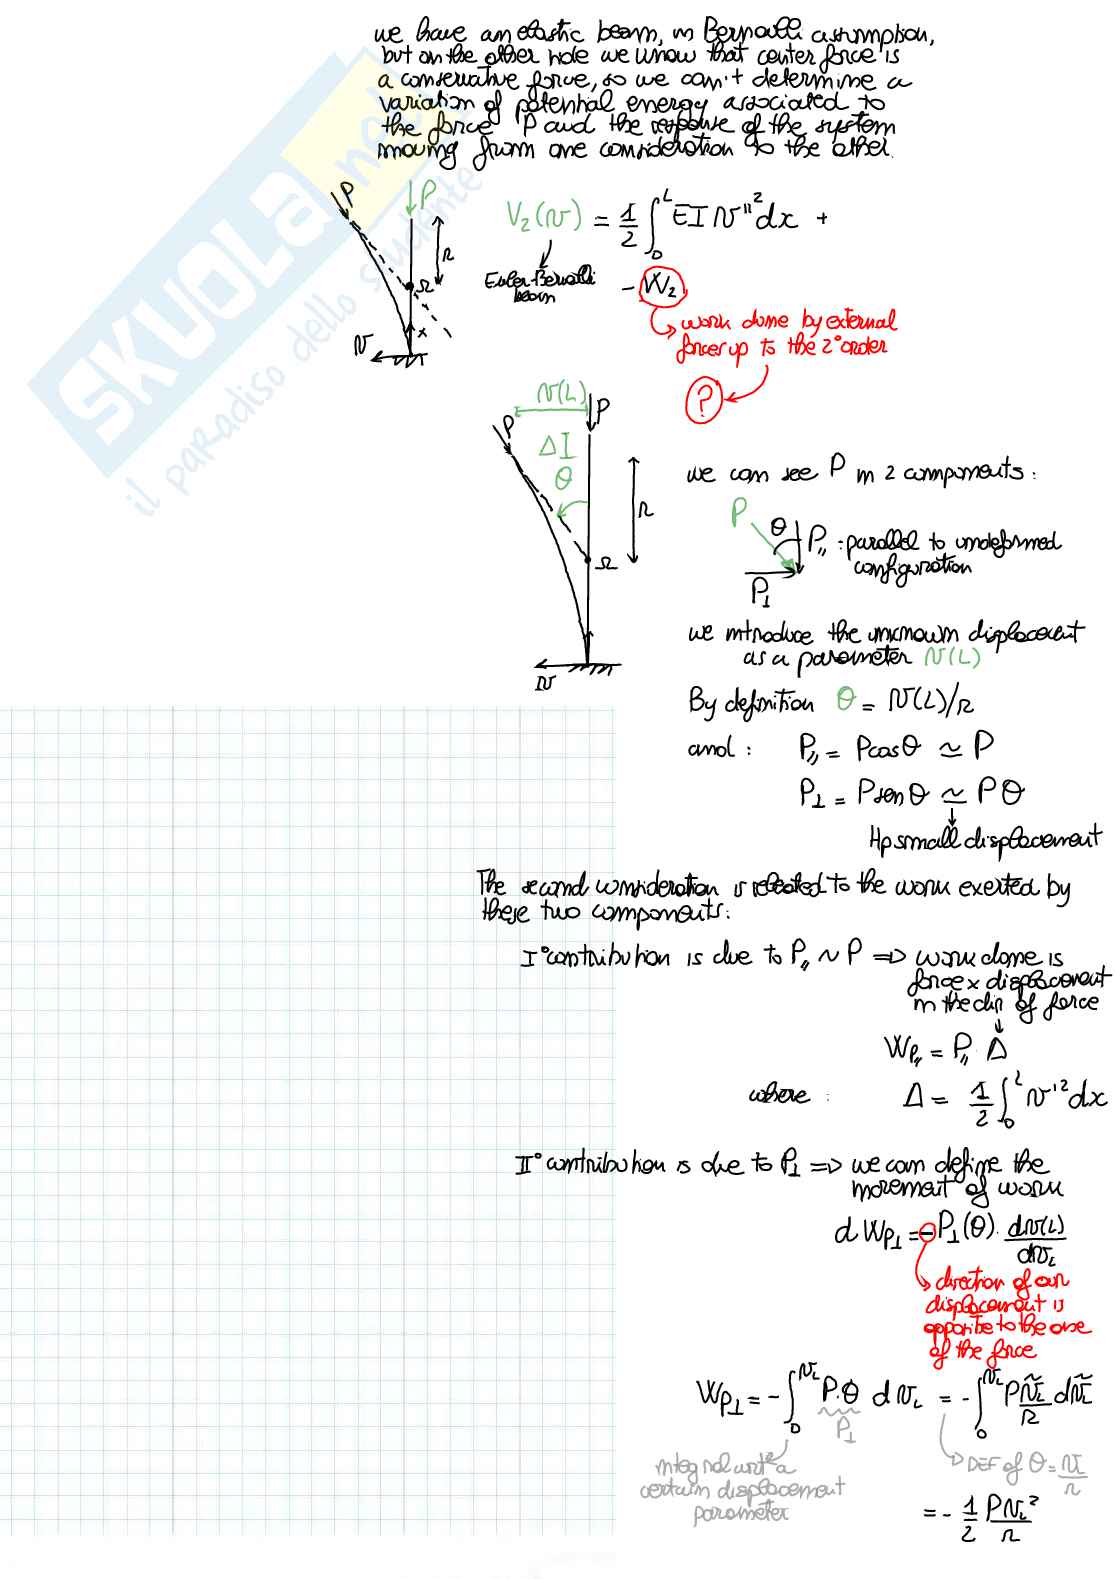 we have an elastic beam, in Bernoulli assumption,
but on the other side we know that center force is
a conservative force, so we can't determine a
variation of potential energy associated to
the force P and the response of the system
moving from one consideration to the other.
SKUOLA.net
il paradiso dello studente
P
P
r
Ω
x
v
V₂(v) = 1/2 ∫₀ᴸ EI v''² dx +
- W₂
Euler-Bernoulli
beam
work done by external
forces up to the 2° order
?
v(L)
P
P
ΔI
θ
r
Ω
v
we can see P in 2 components:
P
θ
P∥ : parallel to undeformed
configuration
P⊥
we introduce the unknown displacement
as a parameter v(L)
By definition θ = v(L)/r
and : P∥ = Pcosθ ≃ P
P⊥ = Psenθ ≃ Pθ
Hp small displacement
The second consideration is related to the work exerted by
these two components:
I° contribution is due to P∥ ~ P ⇒ work done is
force x displacement
in the dir of force
W_P∥ = P∥ · Δ
where : Δ = 1/2 ∫₀ᴸ v'² dx
II° contribution is due to P⊥ ⇒ we can define the
increment of work
d W_P⊥ = - P⊥(θ) · dv(L)/dv_L
direction of our
displacement is
opposite to the one
of the force
W_P⊥ = - ∫₀^{v_L} P·θ dv_L = - ∫₀^{v_L} P ṽ_L/r dṽ_L
P⊥
integral until a
certain displacement
parameter
DEF of θ = v_L/r
= - 1/2 P v_L²/r